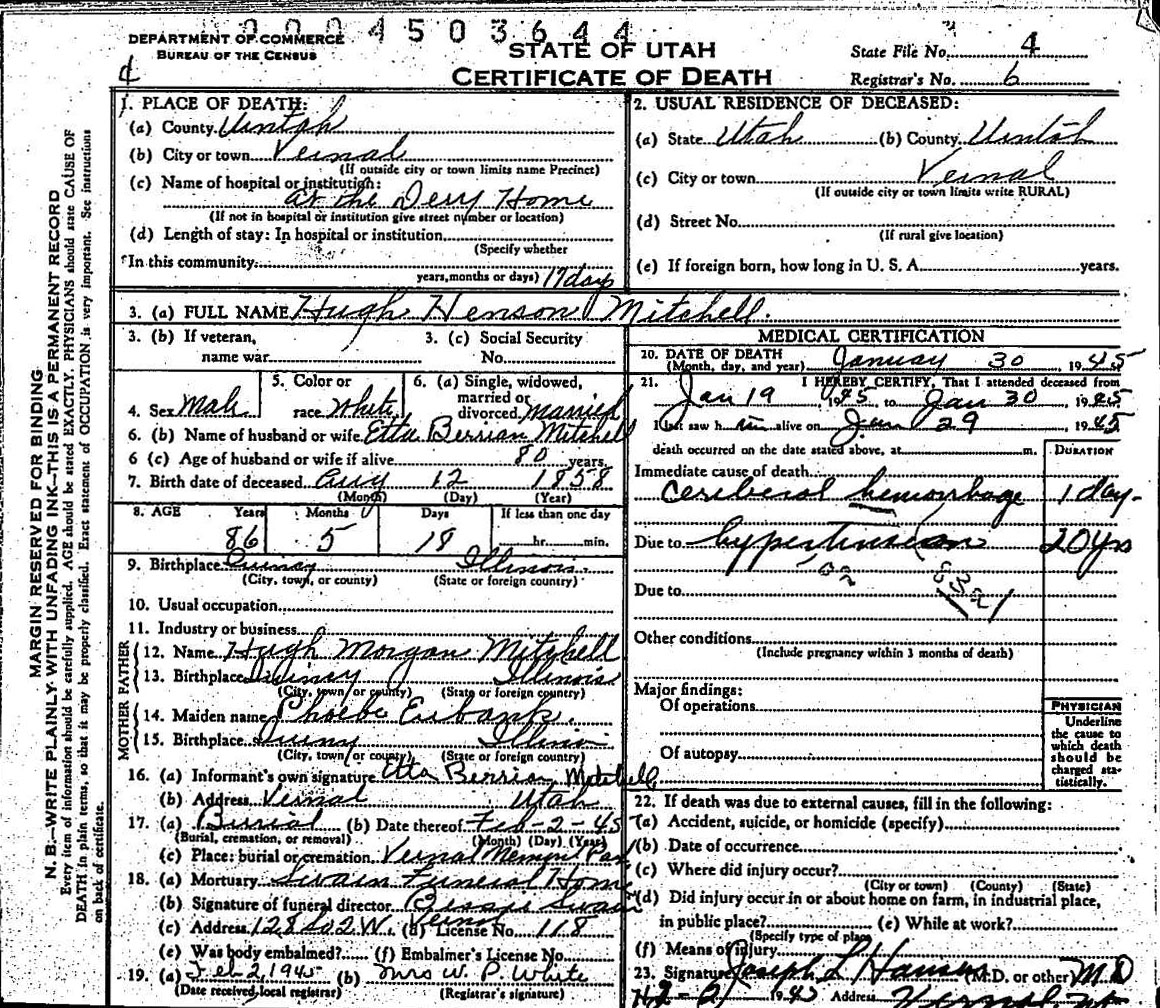 2 0 0 4 5 0 3 6 4 4
DEPARTMENT OF COMMERCE
BUREAU OF THE CENSUS
STATE OF UTAH
CERTIFICATE OF DEATH
State File No. 4
Registrar's No. 6
1. PLACE OF DEATH:
(a) County Uintah
(b) City or town Vernal
(If outside city or town limits name Precinct)
(c) Name of hospital or institution:
at the Dery Home
(If not in hospital or institution give street number or location)
(d) Length of stay: In hospital or institution
(Specify whether
In this community
years, months or days) 17 days
2. USUAL RESIDENCE OF DECEASED:
(a) State Utah (b) County Uintah
(c) City or town Vernal
(If outside city or town limits write RURAL)
(d) Street No.
(If rural give location)
(e) If foreign born, how long in U. S. A. years.
3. (a) FULL NAME Hugh Henson Mitchell.
3. (b) If veteran, name war
3. (c) Social Security No.
4. Sex Male
5. Color or race White
6. (a) Single, widowed, married or divorced married
6. (b) Name of husband or wife Etta Berrian Mitchell
6 (c) Age of husband or wife if alive 80 years.
7. Birth date of deceased Aug 12 1858
(Month) (Day) (Year)
8. AGE Years Months Days If less than one day
86 5 18 hr. min.
9. Birthplace Quincy Illinois
(City, town, or county) (State or foreign country)
10. Usual occupation
11. Industry or business
FATHER
12. Name Hugh Morgan Mitchell
13. Birthplace Quincy Illinois
(City, town or county) (State or foreign country)
MOTHER
14. Maiden name Phoebe Eubank.
15. Birthplace Quiny Illinoi
(City, town or county) (State or foreign country)
16. (a) Informant's own signature Etta Berrian Mitchell
(b) Address Vernal Utah
17. (a) Burial (b) Date thereof Feb-2-45
(Burial, cremation, or removal) (Month) (Day) (Year)
(c) Place: burial or cremation Vernal Memorial Park
18. (a) Mortuary Swain Funeral Home
(b) Signature of funeral director Bessie Swain
(c) Address 128 So 2 W. Vernal (d) License No. 118
(e) Was body embalmed? (f) Embalmer's License No.
19. (a) Feb 2 1945 (b) Mrs W. P. White
(Date received local registrar) (Registrar's signature)
MEDICAL CERTIFICATION
20. DATE OF DEATH
(Month, day, and year) January 30 1945
21. I HEREBY CERTIFY, That I attended deceased from
Jan 19 1945 to Jan 30 1945
I last saw him alive on Jan 29 1945
death occurred on the date stated above, at m.
DURATION
Immediate cause of death
cerebral hemorrhage 1 day
Due to hypertension 20 yrs
832
Due to
Other conditions
(Include pregnancy within 3 months of death)
Major findings:
Of operations
Of autopsy
PHYSICIAN
Underline
the cause to
which death
should be
charged sta-
tistically.
22. If death was due to external causes, fill in the following:
(a) Accident, suicide, or homicide (specify)
(b) Date of occurrence
(c) Where did injury occur?
(City or town) (County) (State)
(d) Did injury occur in or about home on farm, in industrial place,
in public place? (e) While at work?
(Specify type of place)
(f) Means of injury
23. Signature Joseph L Hansen (M.D. or other) M D
2-2 1945 Address Vernal Ut
MARGIN RESERVED FOR BINDING
N. B.—WRITE PLAINLY WITH UNFADING INK—THIS IS A PERMANENT RECORD
Every item of information should be carefully supplied. AGE should be stated EXACTLY. PHYSICIANS should state CAUSE OF
DEATH in plain terms, so that it may be properly classified. Exact statement of OCCUPATION is very important. See instructions
on back of certificate.